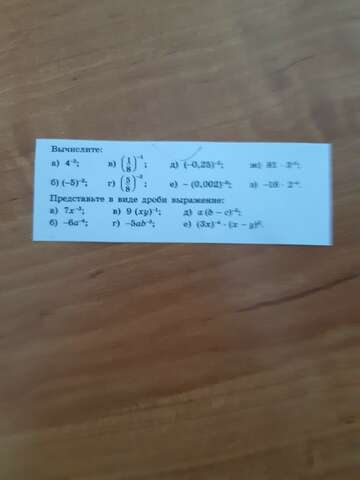 Вычислите:
а) 4⁻³; в) (1/8)⁻¹; д) (−0,25)⁻²; ж)
б) (−5)⁻²; г) (5/8)⁻²; е) − (0,002)⁻²; з) −16 · 2⁻⁴.
Представьте в виде дроби выражение:
а) 7x⁻³; в) 9 (xy)⁻¹; д) a (b − c)⁻²;
б) −6a⁻⁴; г) −5ab⁻³; е) (3x)⁻⁴ · (x − y)².